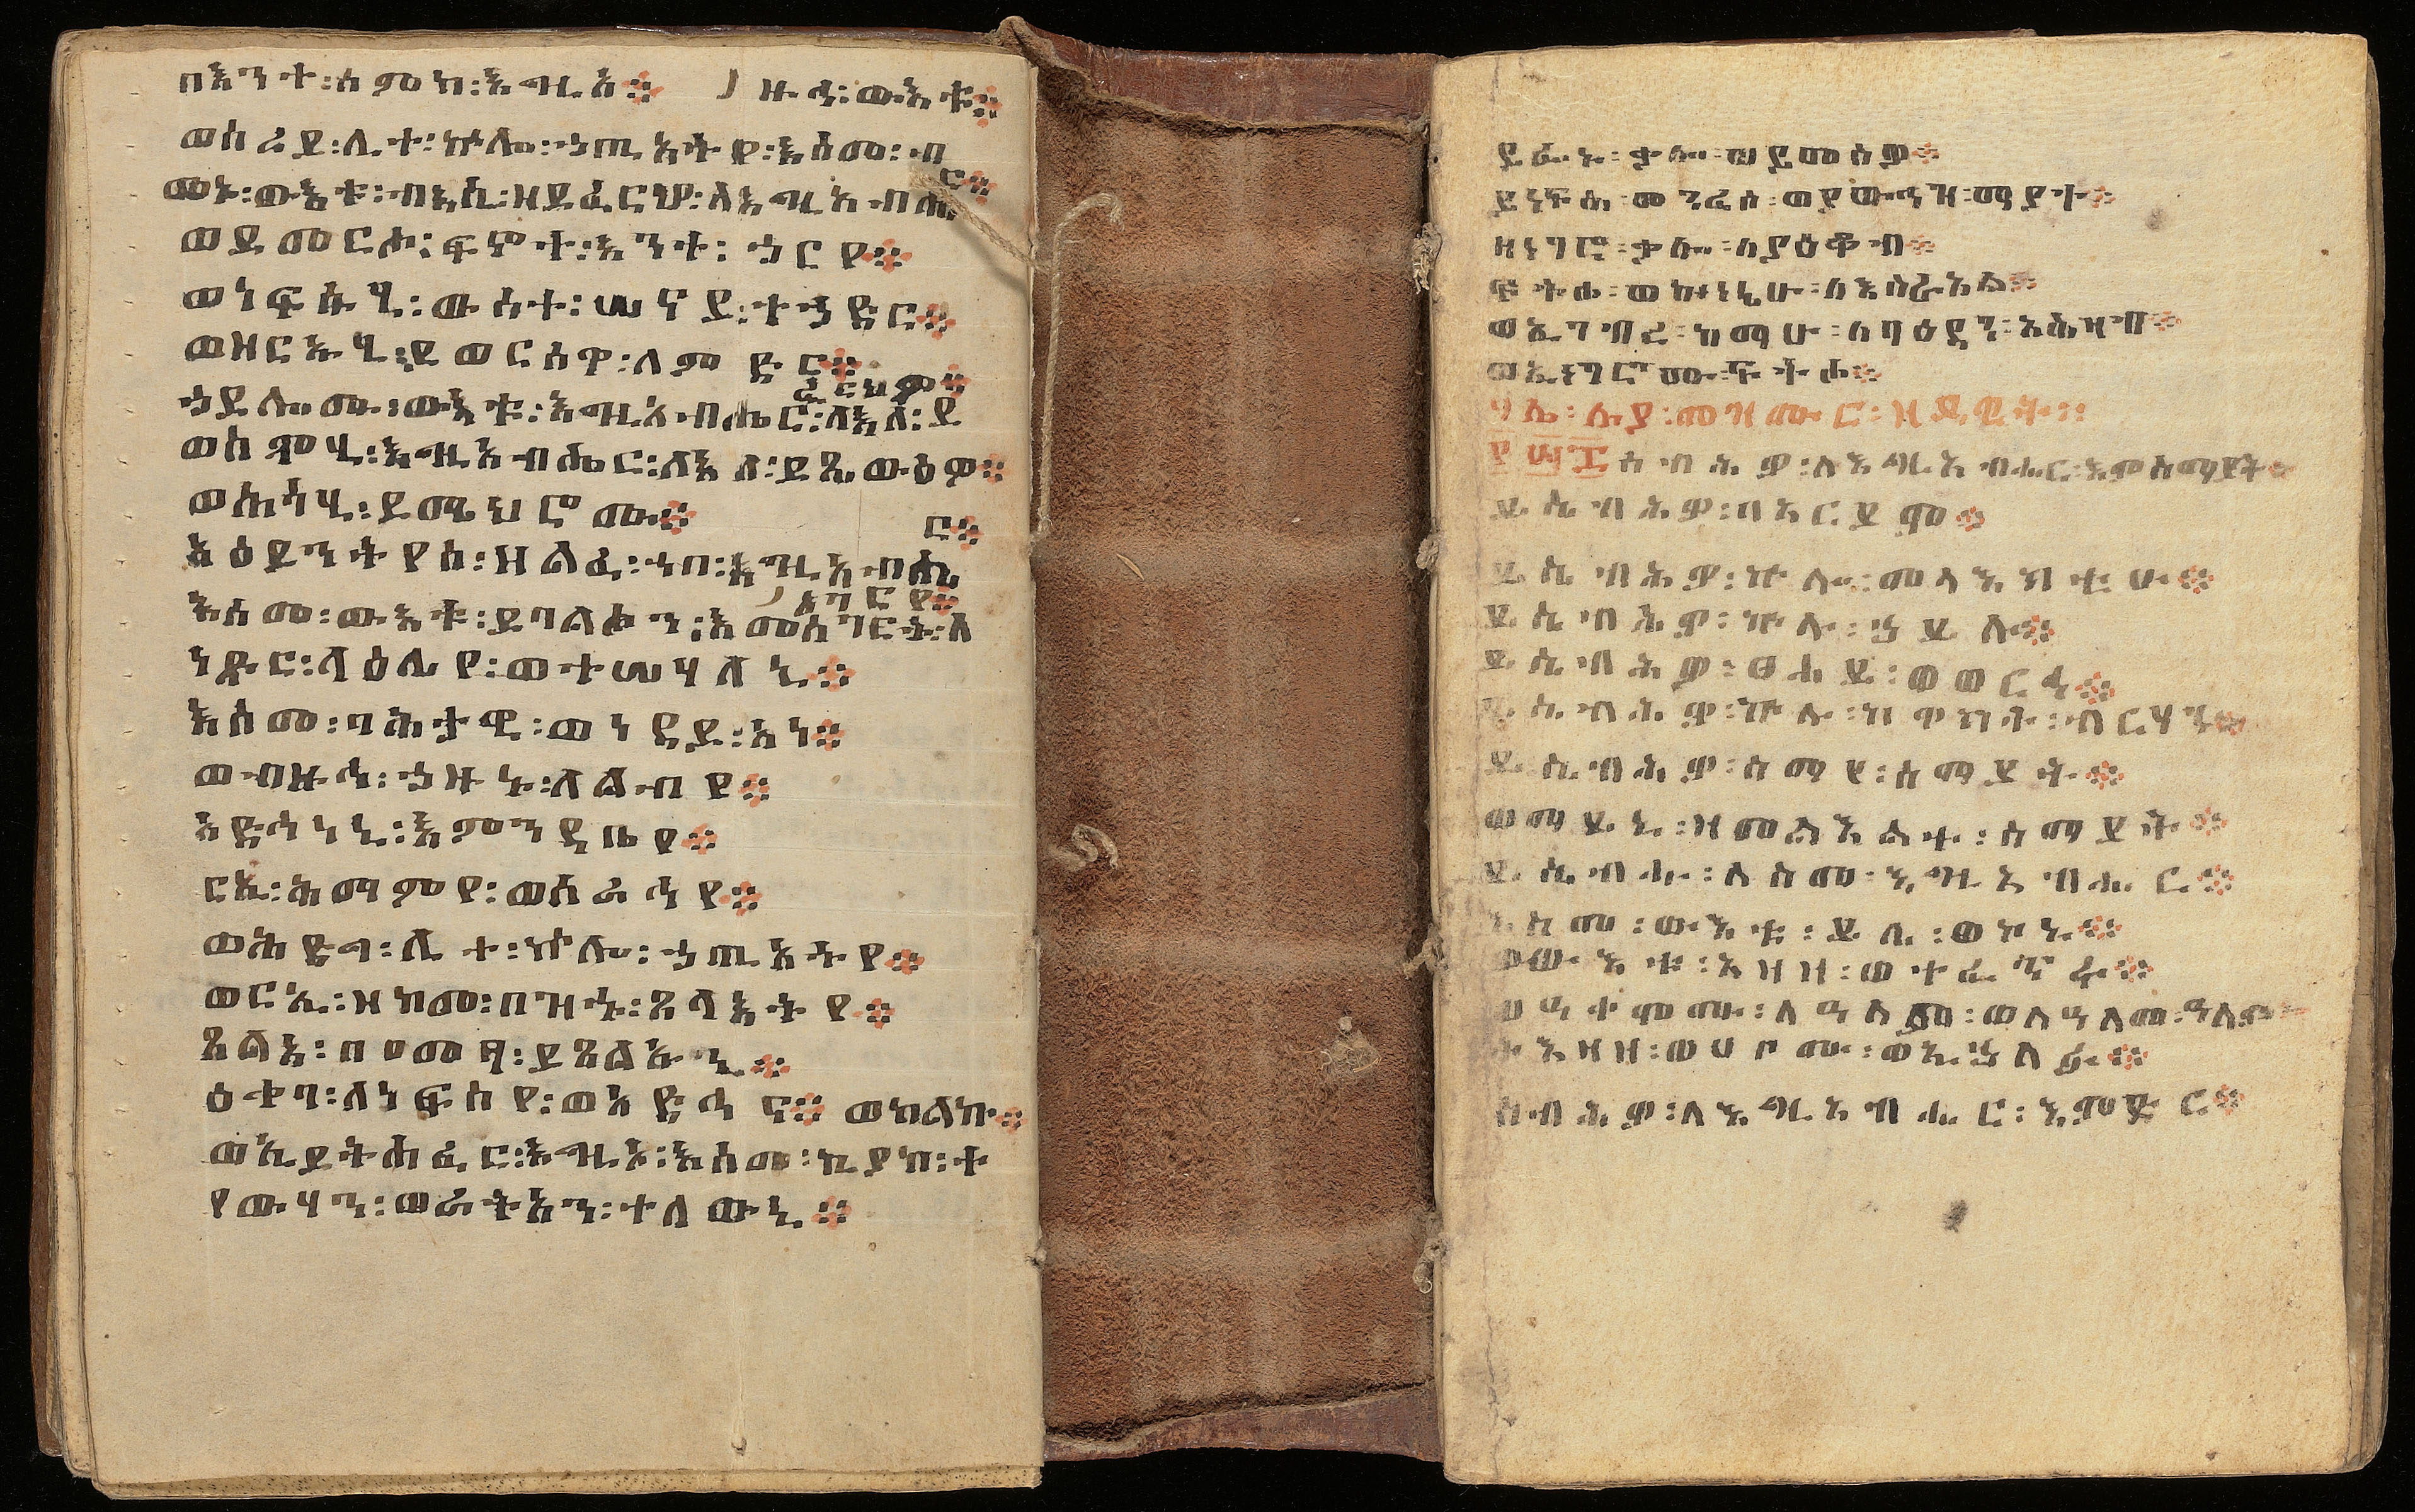 በእንተ፡ስምከ፡እግዚኦ።
ወስረይ፡ሊተ፡ኵሎ፡ኃጢአትየ፡እስመ፡ብ
ዙኅ፡ውእቱ።
መኑ፡ውእቱ፡ብእሲ፡ዘይፈርሆ፡ለእግዚአብሔ
ር።
ወይመርሖ፡ፍኖተ፡እንተ፡ኃርየ።
ወነፍሱሂ፡ውስተ፡ሠናይ፡ተኃድር።
ወዘርኡሂ፡ይወርስዋ፡ለምድር።
ኃይሎሙ፡ውእቱ፡እግዚአብሔር፡ለእለ፡ይ
ፈርህዎ።
ወስምሂ፡እግዚአብሔር፡ለእለ፡ይጼውዕዎ።
ወሕጎሂ፡ይሜህሮሙ።
አዕይንትየሰ፡ዘልፈ፡ኀበ፡እግዚአብሔ
ር።
እስመ፡ውእቱ፡ይባልሖን፡እመስገርት፡ለ
እገርየ።
ነጽር፡ላዕሌየ፡ወተሣሃለኒ።
እስመ፡ባሕታዊ፡ወነዳይ፡አነ።
ወብዙኅ፡ኃዘኑ፡ለልብየ።
አድኅነኒ፡እምንዳቤየ።
ርኢ፡ሕማምየ፡ወስራሕየ።
ወኅድግ፡ሊተ፡ኵሎ፡ኃጢአትየ።
ወርኢ፡ዘከመ፡በዝኁ፡ጸላእትየ።
ጽልአ፡በዐመፃ፡ይጸልኡኒ።
ዕቀባ፡ለነፍስየ፡ወአድኅና። ወኪልኩ።
ወኢይትኀፈር፡እግዚኦ፡እስመ፡ኪያከ፡ተ
የውሃን፡ወራትዓን፡ተለዉኒ።
ይፌኑ፡ቃሎ፡ወይመስዎ።
ይነፍሕ፡መንፈሶ፡ወያውኅዝ፡ማያተ።
ዘነገሮ፡ቃሎ፡ለያዕቆብ።
ፍትሐ፡ወኵነኔሁ፡ለእስራኤል።
ወኢገብረ፡ከማሁ፡ለባዕዳን፡አሕዛብ።
ወኢነገሮሙ፡ፍትሖ።
ሃሌ፡ሉያ፡መዝሙር፡ዘዳዊት።
ሰብሕዎ፡ለእግዚአብሔር፡እምሰማያት።
ይሴብሕዎ፡በአርያም።
ይሴብሕዎ፡ኵሎ፡መላእክቲሁ።
ይሴብሕዎ፡ኵሎ፡ኃይሉ።
ይሴብሕዎ፡ፀሐይ፡ወወርኅ።
ይሴብሕዎ፡ኵሎ፡ከዋክብት፡ብርሃን።
ይሴብሕዎ፡ሰማየ፡ሰማያት።
ወማይኒ፡ዘመልዕልተ፡ሰማያት።
ይሴብሑ፡ለስመ፡እግዚአብሔር።
እስመ፡ውእቱ፡ይቤ፡ወኮኑ።
ወውእቱ፡አዘዘ፡ወተፈጥሩ።
ወአቀሞሙ፡ለዓለም፡ወለዓለመ፡ዓለም።
ትእዛዘ፡ወሀቦሙ፡ወኢኃለፉ።
ሰብሕዎ፡ለእግዚአብሔር፡እምድር።